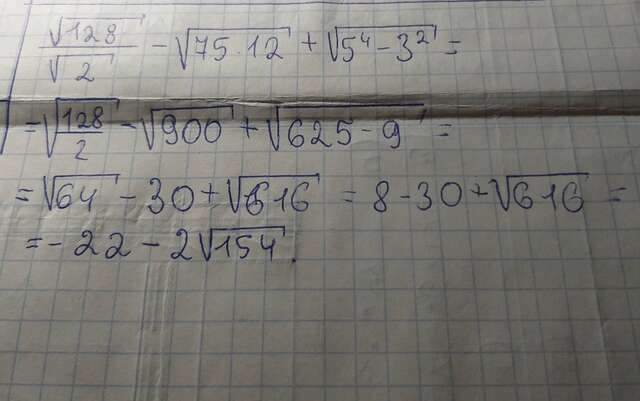 √128/√2 − √75·12 + √5⁴−3² =
= √128/2 − √900 + √625−9 =
= √64 − 30 + √616 = 8 − 30 + √616 =
= −22 − 2√154.